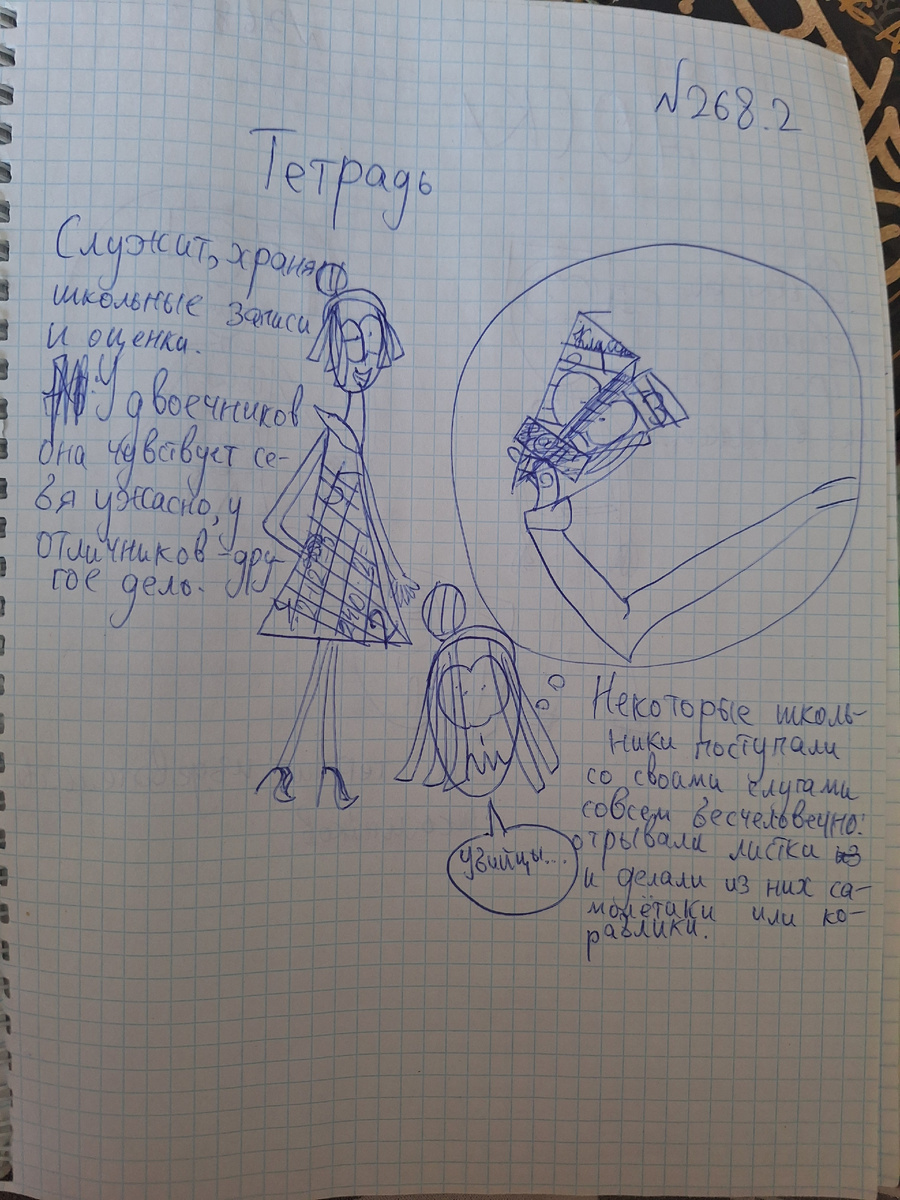 №268.2
Тетрадь
Служит, храня
школьные записи
и оценка.
У двоечников
она чувствует се-
бя ужасно, у
отличников - дру-
гое дело.
Некоторые школь-
ники поступали
со своими слугами
совсем бесчеловечно:
отрывали листки из
и делали из них са-
молётаки или ко-
раблики.
убийцы...